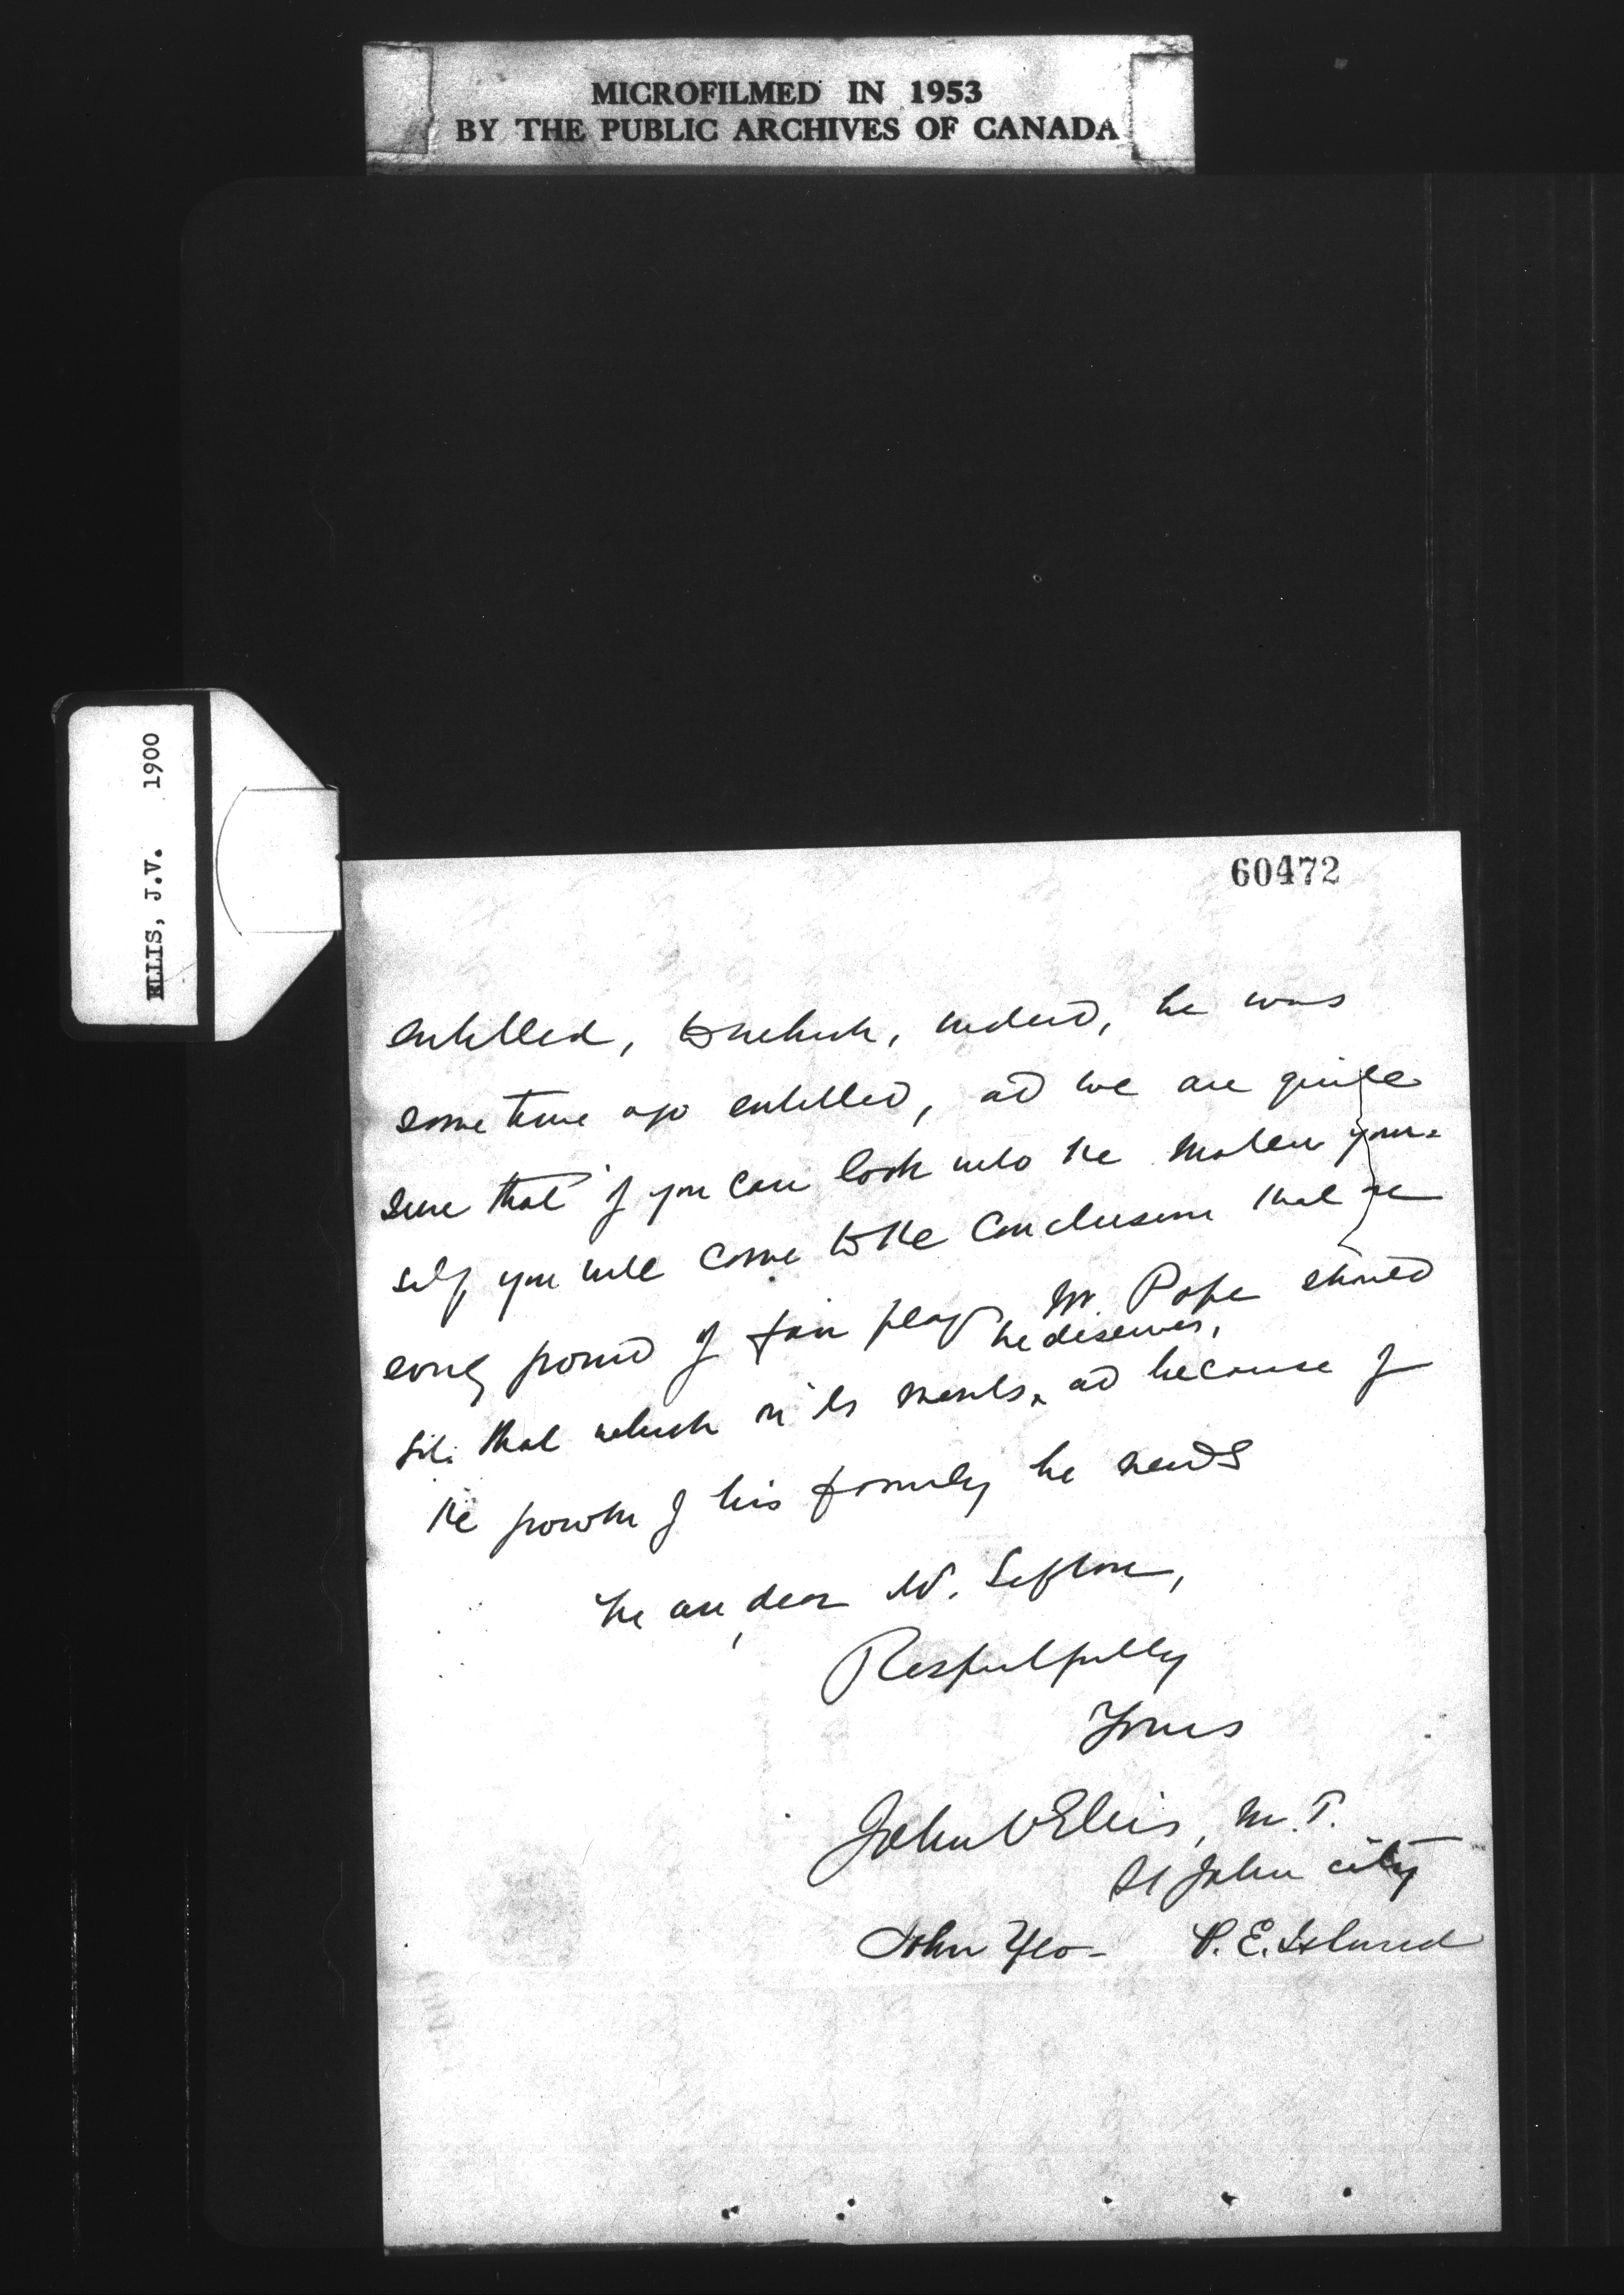 MICROFILMED IN 1953
BY THE PUBLIC ARCHIVES OF CANADA
ELLIS, J.V. 1900
60472
entitled, to which, indeed, he was
some time ago entitled, and we are quite
sure that if you can look into the matter your-
self, you will come to the conclusion that on
every ground of fair play Mr. Pope should
he deserves,
get that which on its merits and because of
the growth of his family he needs
We are, dear Mr. Sifton,
Respectfully
Yours
John V Ellis, M.P.
St John city
John Yeo - P. E. Island